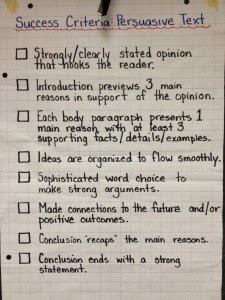 Success Criteria: Persuasive Text
Strongly/clearly stated opinion
that hooks the reader.
Introduction previews 3 main
reasons in support of the opinion.
Each body paragraph presents 1
main reason with at least 3
supporting facts/details/examples.
Ideas are organized to flow smoothly.
Sophisticated word choice to
make strong arguments.
Made connections to the future and/or
positive outcomes.
Conclusion "recaps" the main reasons.
Conclusion ends with a strong
statement.